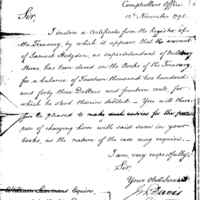 Comptrollers Office
12th November 1795
Sir,
I inclose a certificate from the Register of
the Treasury, by which it appears that the account
of Samuel Hodgdon, as superintendant of military
stores has been closed on the Books of the Treasury,
for a balance of fourteen thousand two hundred
and forty three Dollars and fourteen cents, for
which he stood therein debited. You will there
fore be pleased to make such entries for the pur
pose of charging him with said sum in your
books, as the nature of the case may require.
I am, very respectfully
Sir,
Your Obed. Servant
Davis
William Simmons Esquire